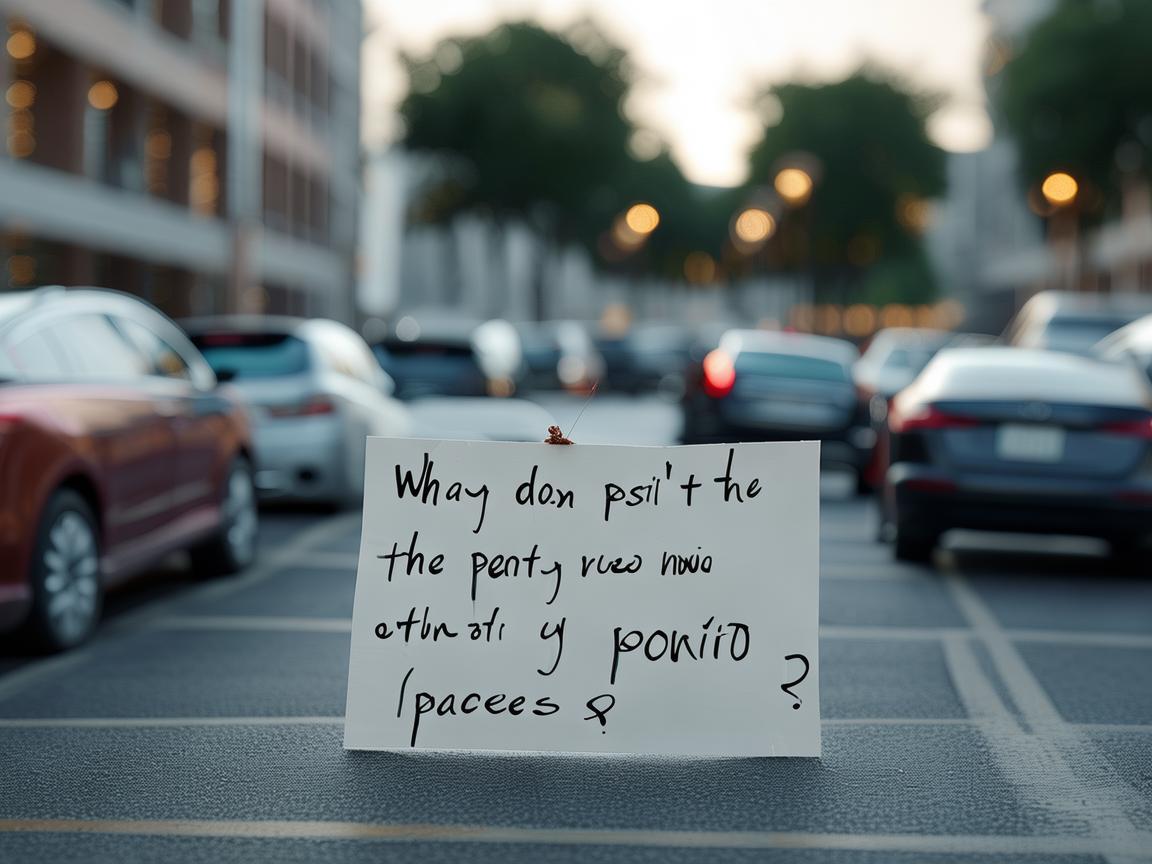 Whay don psil't the
the penty rueo noio
ethn oti y poniio ?
/pacees ?